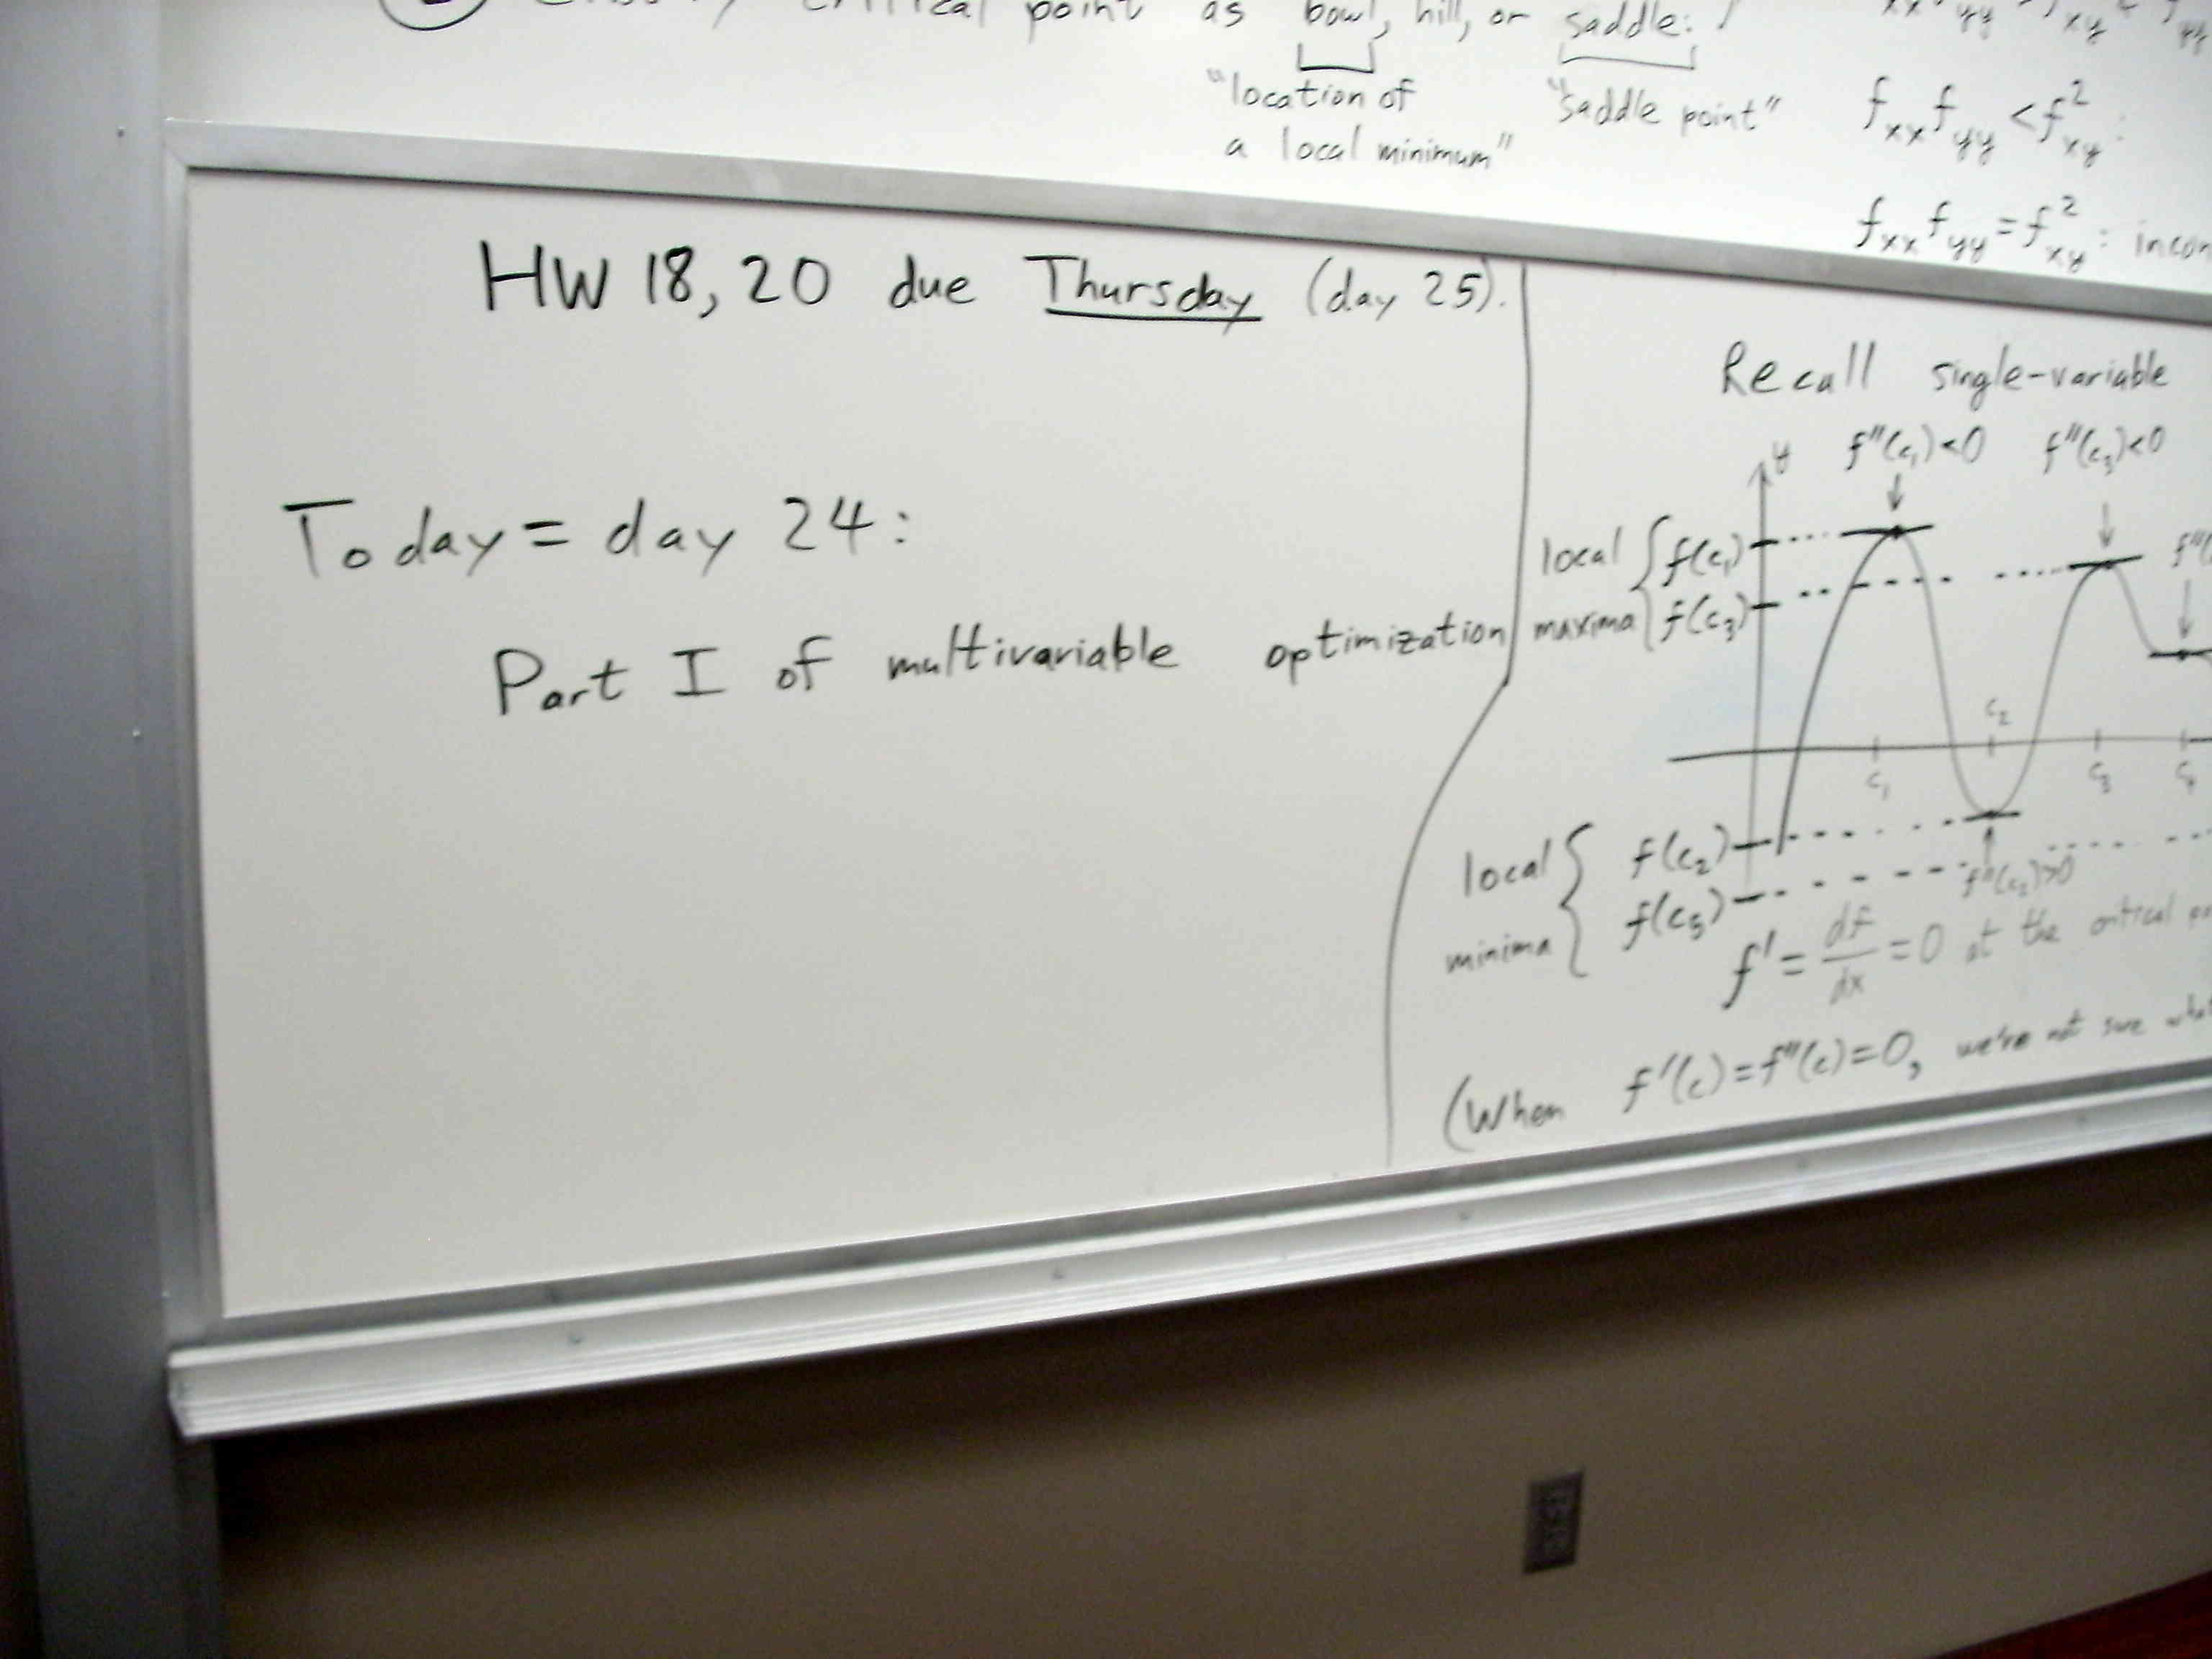 critical point as bowl, hill, or saddle:
"location of
a local minimum"
"saddle point"
f_xx f_yy < f_xy^2 :
f_xx f_yy = f_xy^2 :
HW 18, 20 due Thursday (day 25).
Today = day 24:
Part I of multivariable optimization
Recall single-variable
y
f''(c_1)<0
f''(c_3)<0
local
maxima
f(c_1)
f(c_3)
c_1
c_2
c_3
local
minima
f(c_2)
f(c_5)
f''(c_2)>0
f' = df/dx = 0 at the critical
(When f'(c)=f''(c)=0, we're not sure